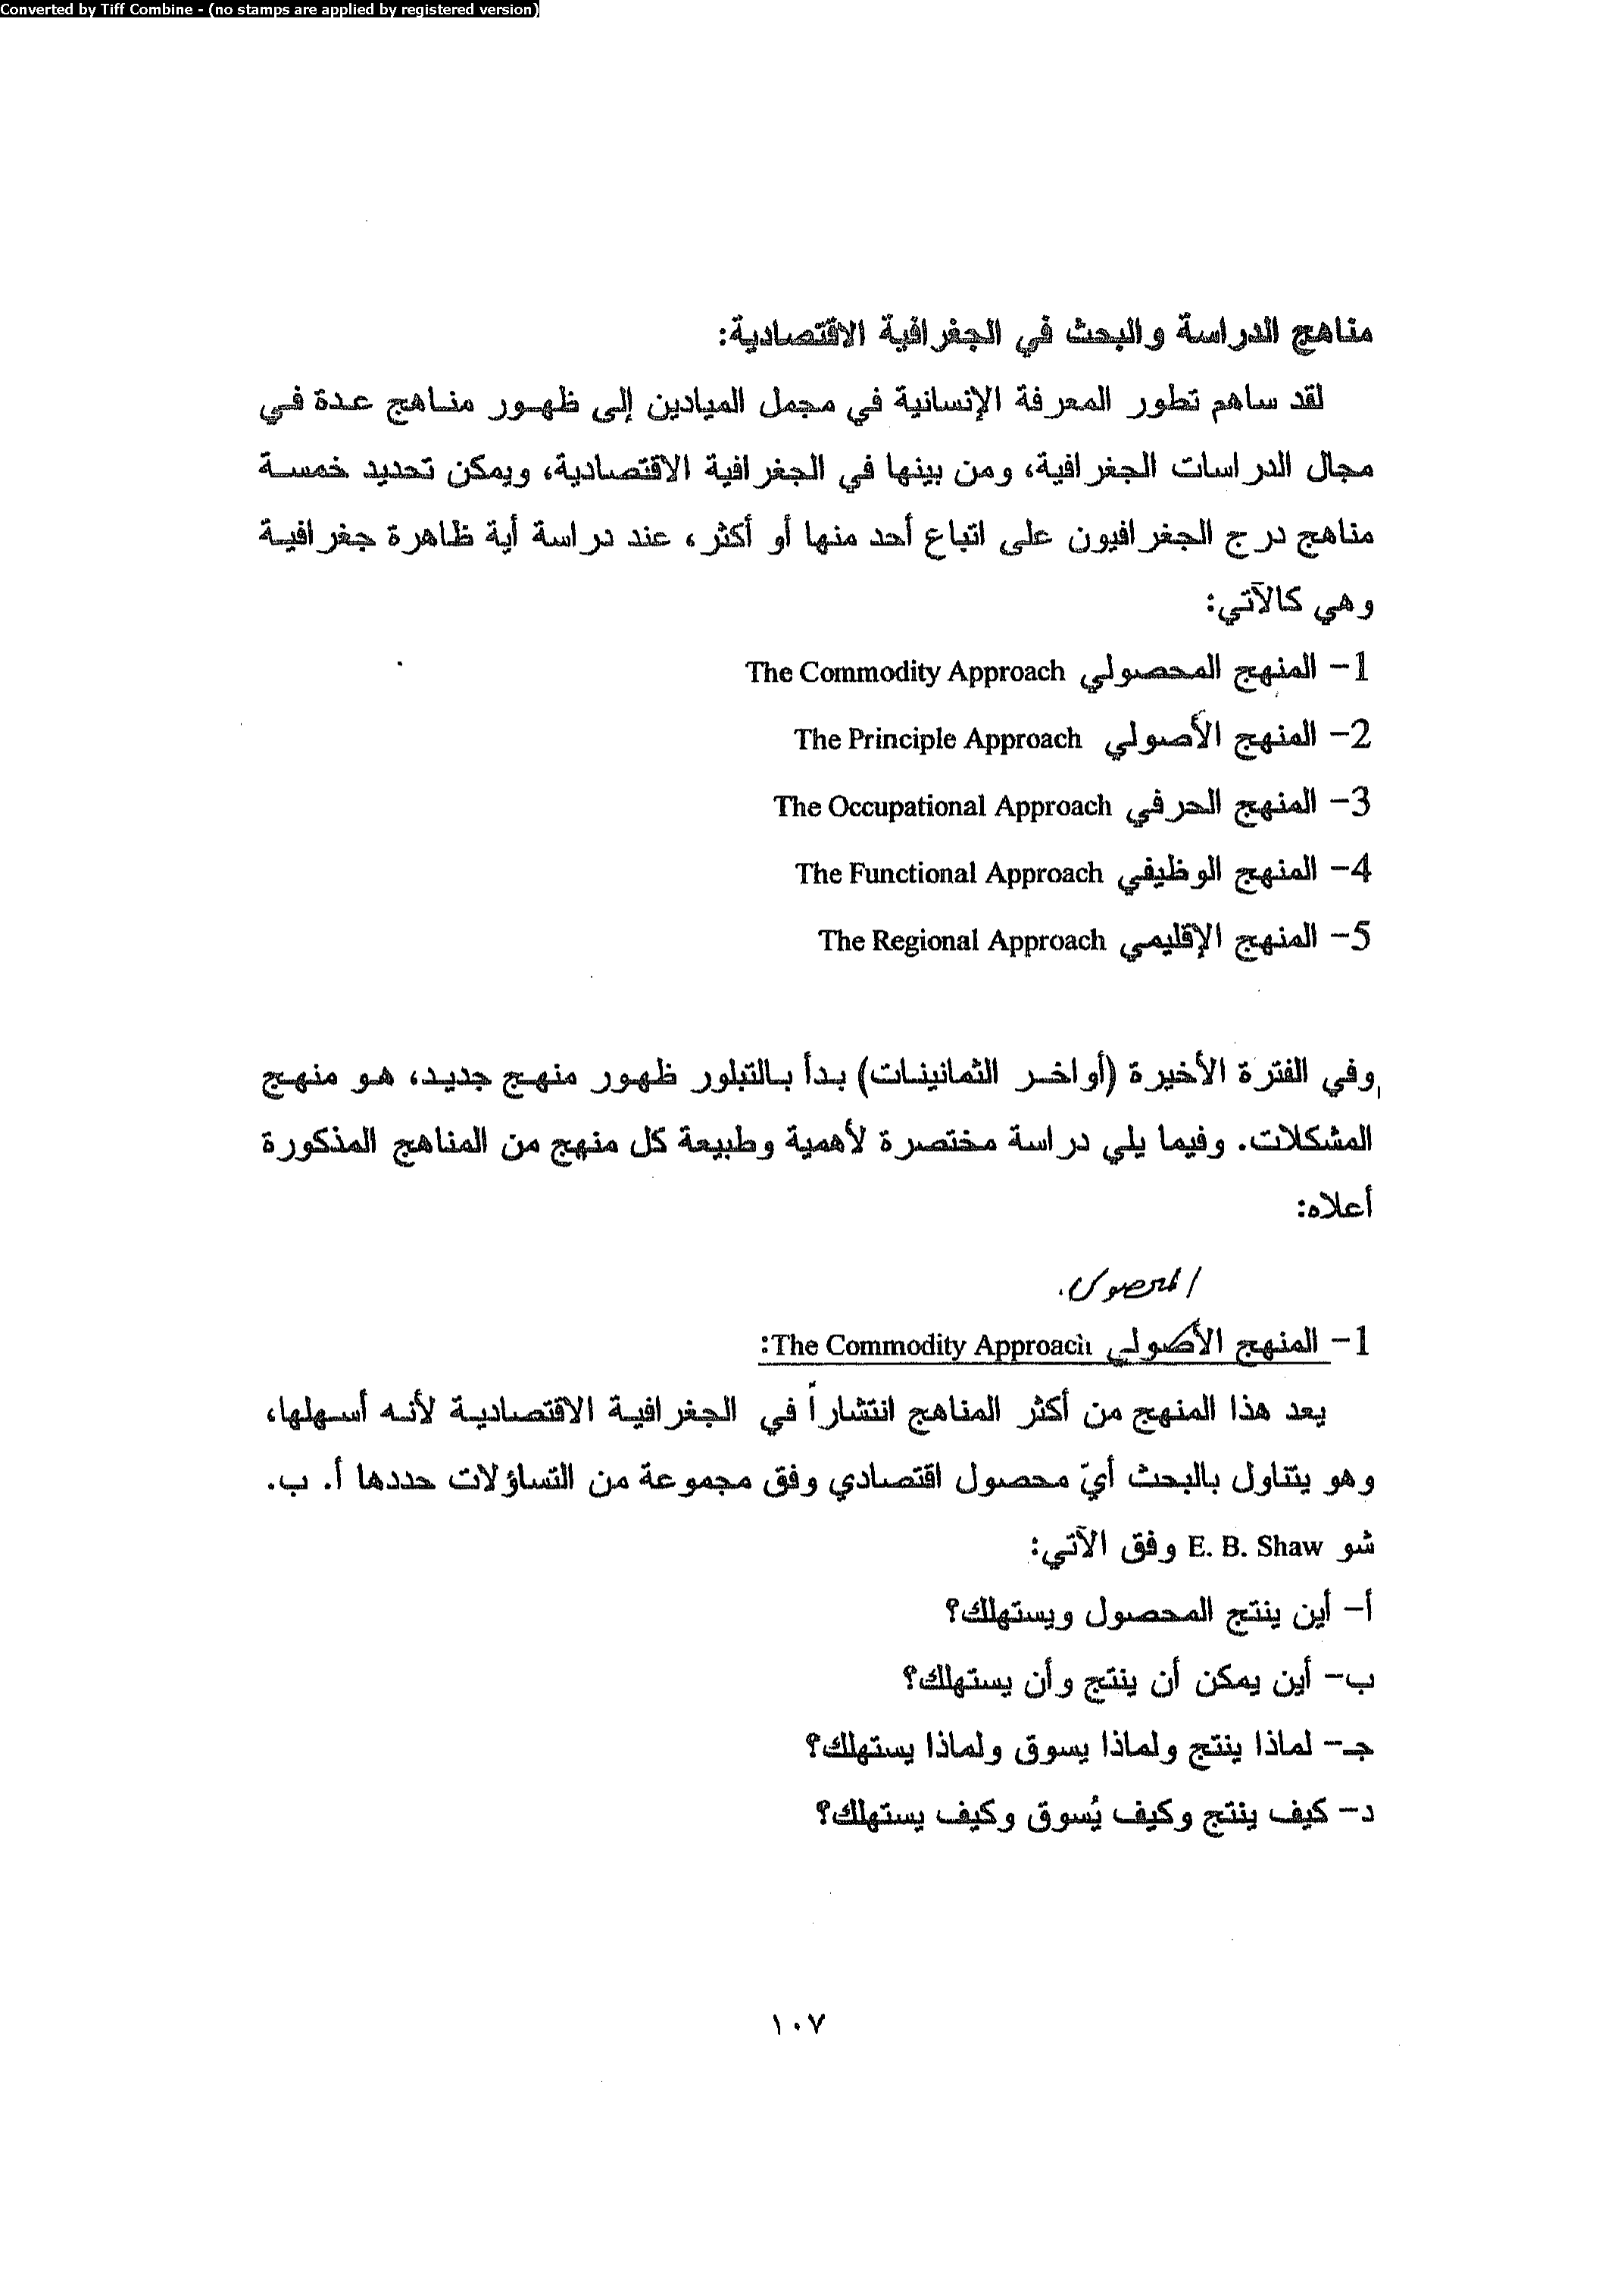 Converted by Tiff Combine - (no stamps are applied by registered version)
مناهج الدراسة والبحث في الجغرافية الاقتصادية:
لقد ساهم تطور المعرفة الإنسانية في مجمل الميادين إلى ظهور مناهج عدة في
مجال الدراسات الجغرافية، ومن بينها في الجغرافية الاقتصادية، ويمكن تحديد خمسة
مناهج درج الجغرافيون على اتباع أحد منها أو أكثر، عند دراسة أية ظاهرة جغرافية
وهي كالآتي:
1- المنهج المحصولي The Commodity Approach
2- المنهج الأصولي The Principle Approach
3- المنهج الحرفي The Occupational Approach
4- المنهج الوظيفي The Functional Approach
5- المنهج الإقليمي The Regional Approach
وفي الفترة الأخيرة (أواخر الثمانينات) بدأ بالتبلور ظهور منهج جديد، هو منهج
المشكلات. وفيما يلي دراسة مختصرة لأهمية وطبيعة كل منهج من المناهج المذكورة
أعلاه:
المحصولي
1- المنهج الأصولي The Commodity Approach:
يعد هذا المنهج من أكثر المناهج انتشاراً في الجغرافية الاقتصادية لأنه أسهلها،
وهو يتناول بالبحث أيّ محصول اقتصادي وفق مجموعة من التساؤلات حددها أ. ب.
شو E. B. Shaw وفق الآتي:
أ- أين ينتج المحصول ويستهلك؟
ب- أين يمكن أن ينتج وأن يستهلك؟
جـ- لماذا ينتج ولماذا يسوق ولماذا يستهلك؟
د- كيف ينتج وكيف يُسوق وكيف يستهلك؟
١٠٧